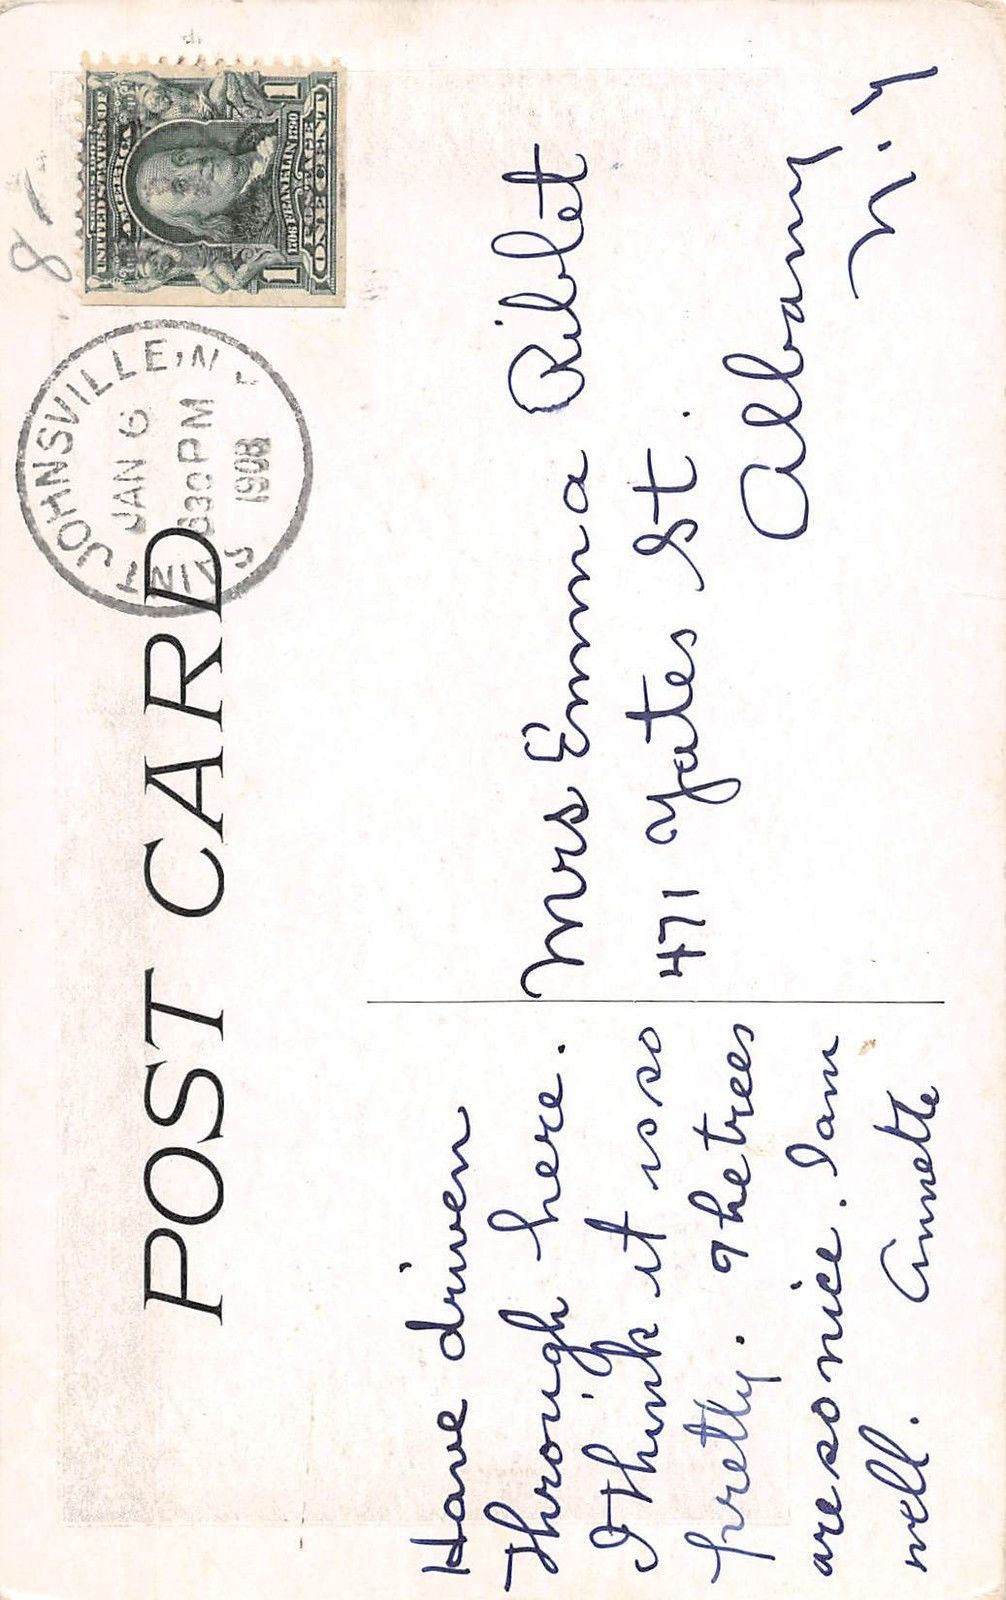 POST CARD
Have driven
through here.
I think it is so
pretty. The trees
are so nice. I am
well. Annette
Mrs Emma Riblet
471 Yates St.
Albany
N.Y
ST JOHNSVILLE, N
JAN 6
630 PM
1908
UNITED STATES OF
AMERICA
1706 FRANKLIN 1790
POSTAGE
1 ONE CENT 1
8-